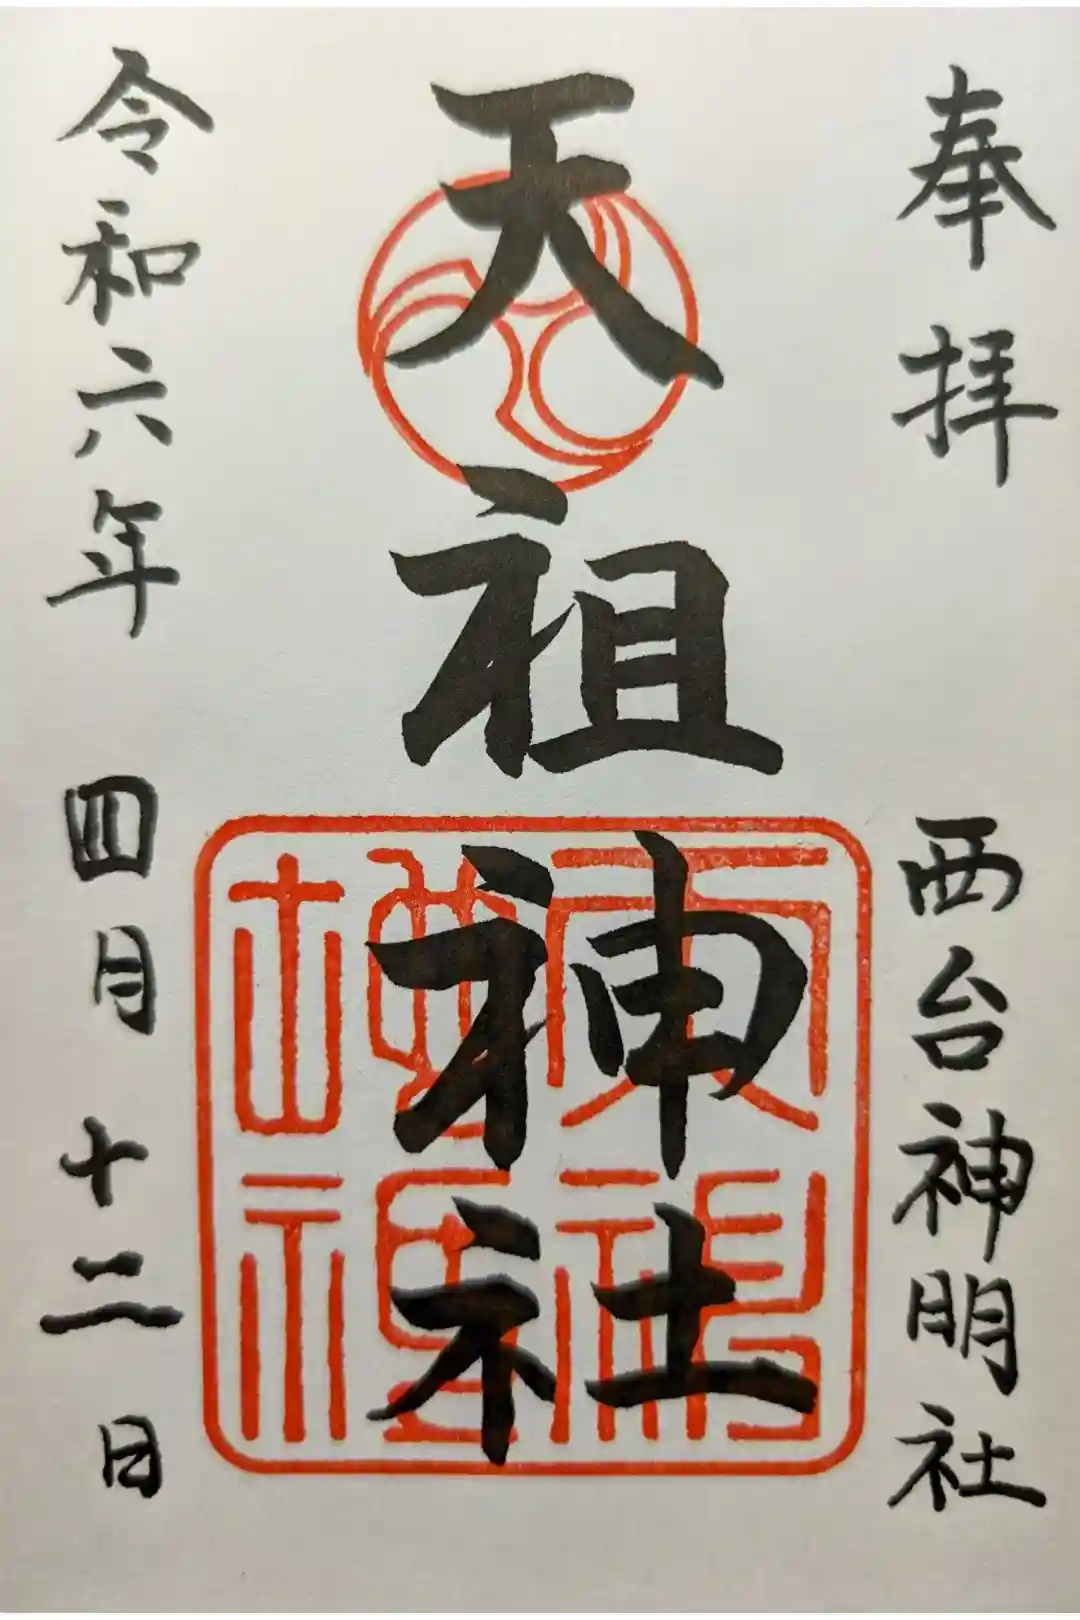 奉拝
西台神明社
天祖神社
令和六年 四月 十二日